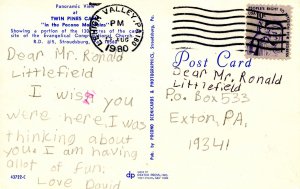 Panoramic View
at
TWIN PINES CAMP
"In the Pocono Mountains"
Showing a portion of the 130 acres of the camp
site of the Evangelical Congregational Church
R.D. #5, Stroudsburg,
LEHIGH VALLEY, PA 180
PM
AUG
1980
Dear Mr. Ronald
Littlefield
I wish you
were here, I was
thinking about
you. I am having
allot of fun.
Love David
43722-C
Pub. by PROMO SCENICARDS & PHOTOGRAPHICS, Stroudsburg, Pa.
dp
Post Card
Dear Mr. Ronald
Littlefield
P.O. Box 533
Exton, PA.
19341